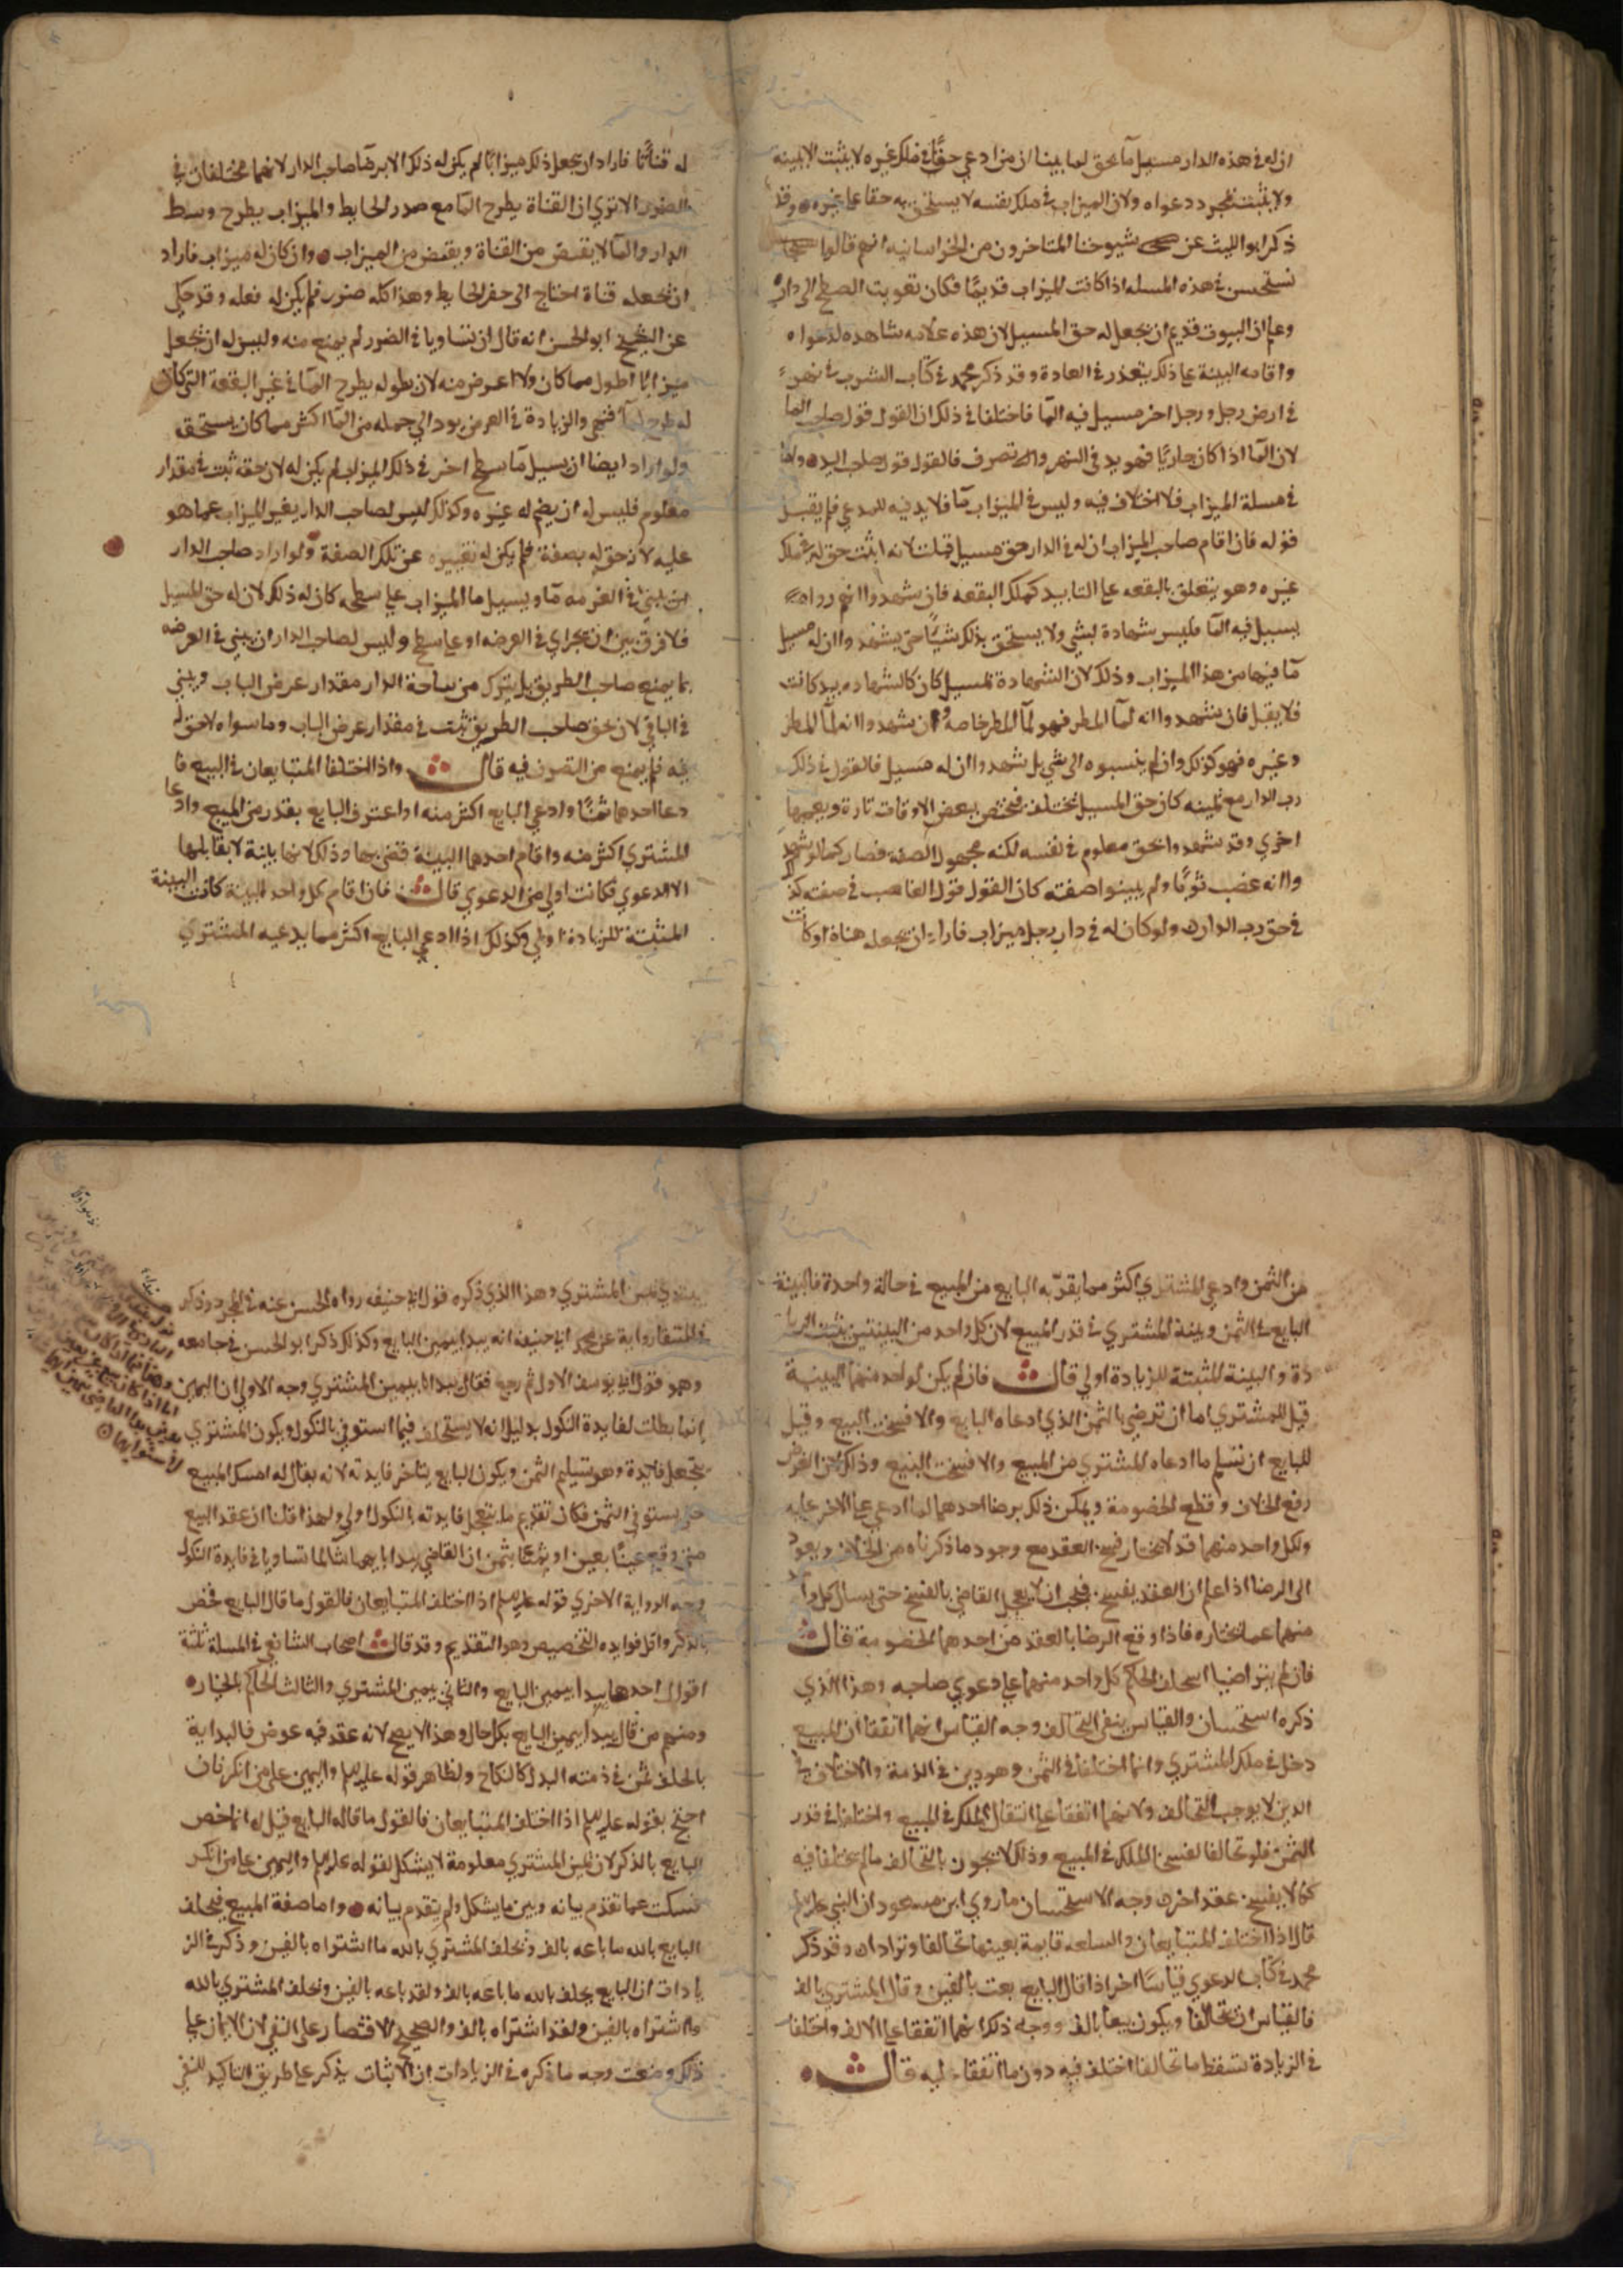 ان له في هذه الدار مسيل مآ بحق لما بينا ان من ادعي حقًا في ملك غيره لا يثبت الا ببينه
ولا يثبت بمجرد دعواه ولان الميزاب في ملك نفسه لا يستحق به حقا علي غيره وقد
ذكر ابو الليث عن شيوخنا المتاخرون من الخراسانيه انهم قالوا
نستحسن في هذه المسله اذا كانت الميزاب قديمًا فكان تصويت السطح الي داره
وعلم ان البيوت قديم ان يجعل له حق المسيل لان هذه علامه شاهده لدعواه
واقامه البينة علي ذلك يتعذر في العادة وقد ذكر محمد في كتاب الشرب في نهر
في ارض رجل ورجل اخر مسيل فيه المآ فاختلفا في ذلك ان القول قول صاحب المآ
لان المآ اذا كان جاريًا فهو يد في النهر وله تصرف فالقول قول صاحب اليد واما
في مسلة الميزاب فلا اختلاف فيه وليس في الميزاب مآ فلا يد فيه للمدعي فلم يقبل
قوله فان اقام صاحب الميزاب ان له في الدار حق مسيل قبلت لانه اثبت حق له في ملك
غيره وهو يتعلق بالبقعه علي التابيد كملك البقعه فان شهدوا انهم رواه
يسيل فيه المآ فليس شهادة بشي ولا يستحق بذلك شيًا حتي يشهدوا ان له مسيل
مآ فيها من هذا الميزاب وذلك لان الشهادة لمسيل كان كالشهاده بيد كانت
فلا يقبل فان شهدوا انه لمآ المطر فهو لمآ المطر خاصه وان شهدوا انه لمآ المطر
وغيره فهو كذلك وان لم ينسبوه الي شي بل شهدوا ان له مسيل فالقول في ذلك
رب الدار مع يمينه كان حق المسيل يختلف فيختص ببعض الاوقات تارة ويعمها
اخري وقد شهدوا بحق معلوم في نفسه لكنه مجهول الصفه فصار كما لو شهد
وا انه غصب ثوبًا ولم يبينوا صفته كان القول قول الغاصب في صفته كذ
في حق رب الدار ولو كان له في دار رجل ميزاب فاراد ان يجعله قناة او كانت
له قناتًا فاراد ان يجعل ذلك ميزابًا لم يكن له ذلك الا برضا صاحب الدار لانهما مختلفان في
الضرر الا تري ان القناة يطرح المآ مع صدر الحايط والميزاب يطرح وسط
الدار والمآ لا يقبض من القناة ويقبض من الميزاب وان كان له ميزاب فاراد
ان يجعله قناة احتاج الي حفر الحايط وهذا كله ضرر فلم يكن له فعله وقد حكي
عن الشيخ ابو الحسن انه قال ان تساويا في الضرر لم يمنع منه وليس له ان يجعل
ميزابًا اطول مما كان ولا اعرض منه لان بطوله يطرح المآ في غير البقعة التي كان
له طرح المآ فيهي والزيادة في العرض يودي الي جمله من المآ اكثر مما كان يستحق
ولو اراد ايضا ان يسيل مآ سطح اخر في ذلك الميزاب لم يكن له لان حقه ثبت في مقدار
معلوم فليس له ان يضم له غيره وكذلك ليس لصاحب الدار يغير الميزاب عما هو
عليه لان حق له بصفة فلم يكن له تغييره عن تلك الصفة ولو اراد صاحب الدار
ان يبني في العرصه مآ ويسيل ما الميزاب علي سطحه كان له ذلك لان له حق المسيل
فلا فرق بين ان يجراي في العرصه او علي سطح وليس لصاحب الدار ان يبني في العرصه
بما يمنع صاحب الطريق بل يترك من ساحة الدار مقدار عرض الباب ويبني
في الباقي لان حق صاحب الطريق ثبت في مقدار عرض الباب وما سواه لا حق له
فيه فلم يمنع من التصرف فيه قال واذا اختلفا المتبايعان في البيع فا
دعا احدهما ثمنًا وادعي البايع اكثر منه او اعترف البايع بقدر من المبيع وادعا
المشتري اكثر منه واقام احدهما البينة قضي بها وذلك لانها بينة لا يقابلها
الا الدعوي فكانت اولي من الدعوي قال فان اقام كل واحد البينة كانت البينة
المثبتة للزيادة اولي وكذلك اذا ادعي البايع اكثر مما يدعيه المشتري
من الثمن وادعي المشتري اكثر مما يقر به البايع من المبيع في حالة واحدة فالبينة
البايع في الثمن وبينة المشتري في قدر المبيع لان كل واحد من البينتين يثبت الزيا
دة والبينة المثبتة للزيادة اولي قال فان لم يكن لواحد منهما البينة
قيل للمشتري اما ان ترضي بالثمن الذي ادعاه البايع والا فسخت البيع وقيل
للبايع ان تسلم ما ادعاه المشتري من المبيع والا فسخت البيع وذلك لان الغرض
رفع الخلاف وقطع الخصومة ويمكن ذلك برضا احدهما لما ادعي علي الاخر عليه
ولكل واحد منهما قد لا يختار فسخ العقد مع وجود ما ذكرناه من الخلاف ويعود
الي الرضا اذا علم ان العقد يفسخ فيجب ان لا يعجل القاضي بالفسخ حتي يسال كل وا
منهما عما يختاره فاذا وقع الرضا بالعقد من احدهما الخصومة قال
فان لم يتراضيا استحلف الحاكم كل واحد منهما علي دعوي صاحبه وهذا الذي
ذكره استحسان والقياس ينفي التحالف وجه القياس انهما اتفقا ان المبيع
دخل في ملك المشتري وانما اختلفا في الثمن وهو دين في الذمة والاختلاف في
الدين لا يوجب التحالف ولانهما اتفقا علي انتقال الملك في المبيع واختلفا في قدر
الثمن فلو تحالفا لفسخ الملك في المبيع وذلك لا يجوز بالتحالف ما لم يختلفا فيه
كما لا يفسخ عقد اخر وجه الاستحسان ما روي ابن مسعود ان النبي عليه السلم
قال اذا اختلف المتبايعان والسلعه قايمة بعينها تحالفا وترادان وقد ذكر
محمد في كتاب الدعوي قياسًا اخر اذا قال البايع بعت بالفين وقال المشتري بالف
فالقياس ان تحالفا ويكون بيعا بالف ووجه ذلك انهما اتفقا علي الالف واختلفا
في الزيادة تسقط ما تحالفا اختلف فيه دون ما اتفقا عليه قال
يبتدي بمين المشتري وهذا الذي ذكره قول ابي حنيفه رواه الحسن عنه في المجرد وذكر
في المنتقا رواية عن محمد ابي حنيفة انه يبدا بيمين البايع وكذلك ذكر ابو الحسن في جامعه
وهو قول ابي يوسف الاول ثم رجع فقال يبدا بيمين المشتري وجه الاولي ان اليمين
انما بطلت لفايدة النكول بدليل انه لا يستحلف فيما استوفي بالنكول ويكون المشتري
يتجعل فايدة وهو تسليم الثمن ويكون البايع يتاخر فايدته لانه يقال له امسك المبيع
حتي يستوفي الثمن فكان تقديم ما يتعجل فايدته بالنكول اولي ولهذا قلنا ان عقد البيع
متي وقع عينًا بعين او ثمنًا بثمن ان القاضي يبدا بايهما شا لما تساويا في فايدة النكول
وجه الرواية الاخري قوله عليه السلم اذا اختلف المتبايعان فالقول ما قال البايع فخص
بالذكر واقل فوايده التخصيص وهو التقديم وقد قال اصحاب الشافعي في المسلة ثلثة
اقوال احدها يبدا بيمين البايع والثاني بيمين المشتري والثالث الحاكم بالخياره
ومنهم من قال يبدا بيمين البايع بكل حال وهذا لا يصح لانه عقد فيه عوض فالبداية
بالحلف ثمن في ذمته البدل كالنكاح ولظاهر قوله عليه السلم واليمين علي من انكر فان
احتج بقوله عليه السلم اذا اختلف المتبايعان فالقول ما قاله البايع قيل له انما خص
البايع بالذكر لان يمين المشتري معلومة لا يشكل لقوله عليه السلم واليمين علي من انكر
فسكت عما تقدم بيانه وبين ما يشكل ولم يتقدم بيانه واما صفة المبيع فيحلف
البايع بالله ما باعه بالف ونحلف المشتري بالله ما اشتراه بالفين وذكر في الز
يادات ان البايع يحلف بالله ما باعه بالف ولقد باعه بالفين ونحلف المشتري بالله
ما اشتراه بالفين ولقد اشتراه بالف والصحيح الاقتصار علي النفي لان الايمان علي
ذلك وضعت وجه ما ذكره في الزيادات ان الاثبات يذكر علي طريق التاكيد للنفي